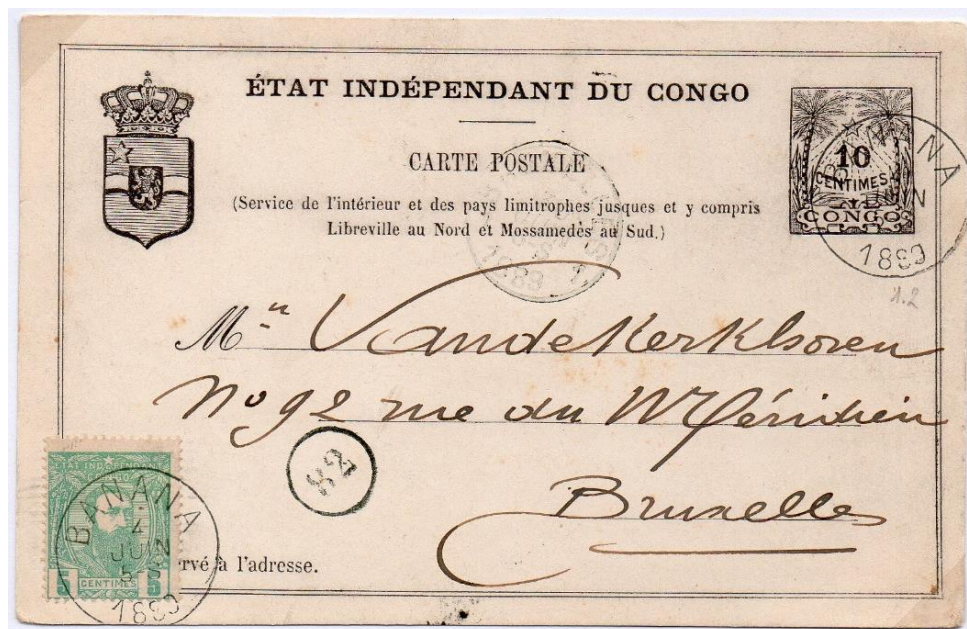 ÉTAT INDÉPENDANT DU CONGO
CARTE POSTALE
(Service de l'intérieur et des pays limitrophes jusques et y compris
Libreville au Nord et Mossamedès au Sud.)
10
CENTIMES
CONGO
BANANA
1889
1889
1.2
Mn Vandekerkhoven
No 92 rue du Méridien
Bruxelles
82
ETAT INDÉPENDANT
5 CENTIMES 5
BANANA
4
JUIN
5-S
1889
rvé à l'adresse.